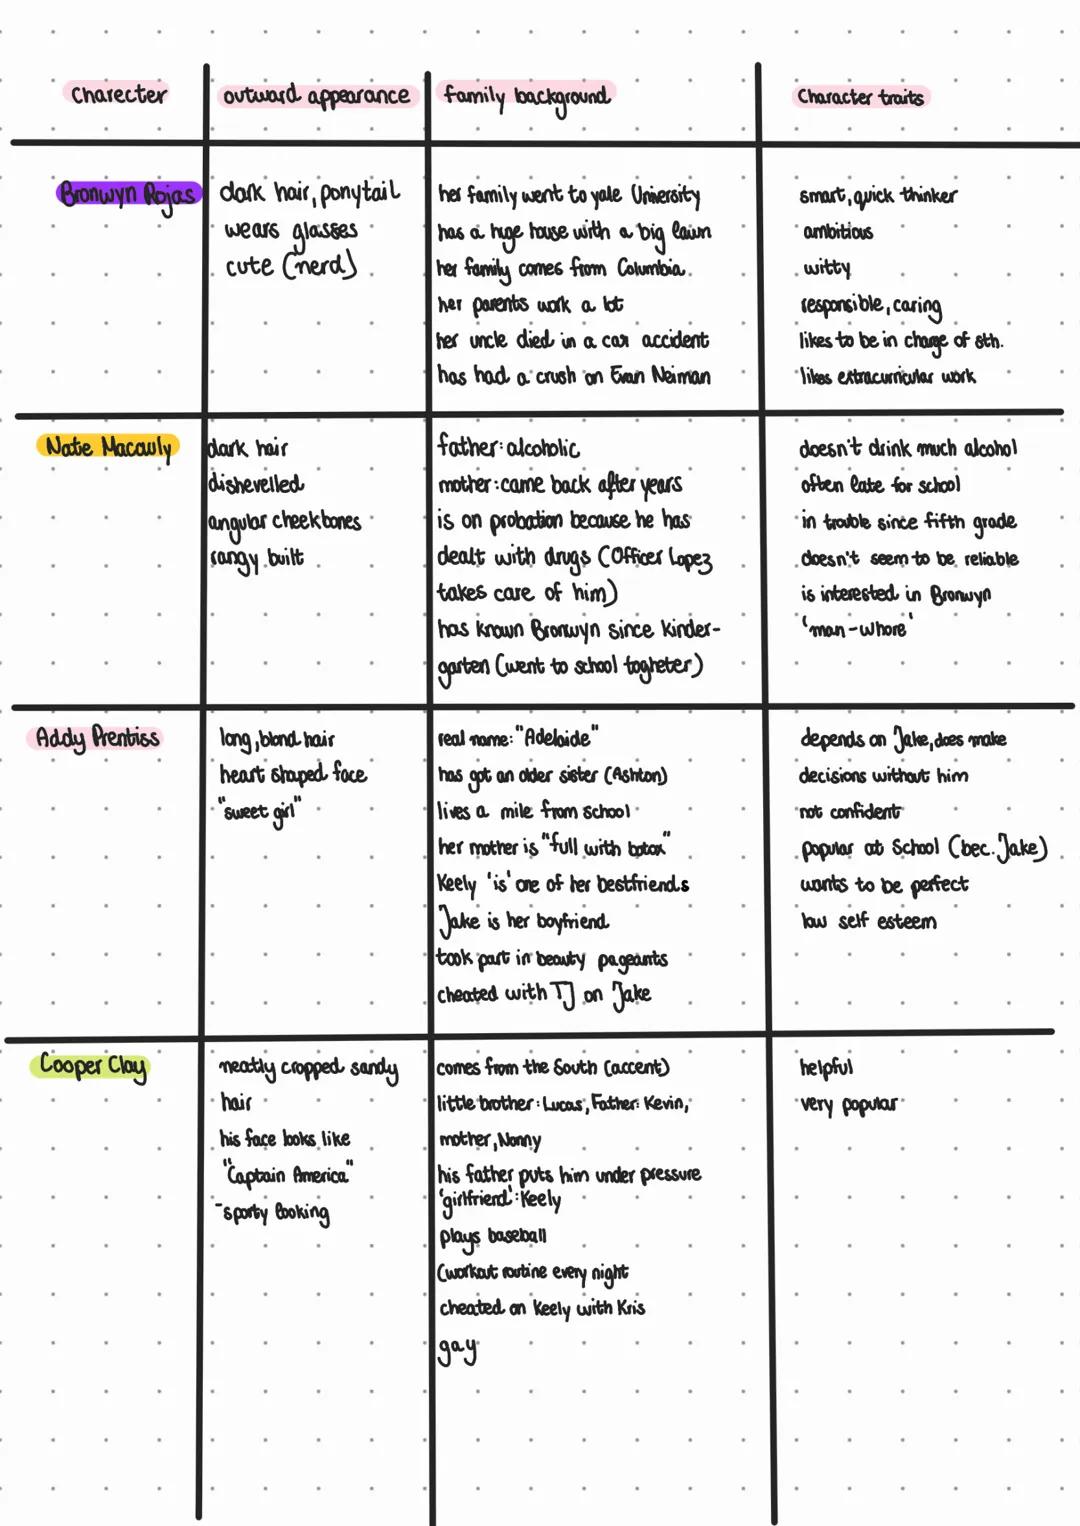 Charecter
outward appearance
family background
Character traits
Bronwyn Rojas
dark hair, ponytail
wears glasses
cute (nerd)
her family went to yale University
has a huge house with a big lawn
her family comes from Columbia
her parents work a lot
her uncle died in a car accident
has had a crush on Evan Neiman
smart, quick thinker
ambitious
witty
responsible, caring
likes to be in charge of sth.
likes extracurricular work
Nate Macauly
dark hair
dishevelled
angular cheekbones
rangy built
father: alcoholic
mother: came back after years
is on probation because he has
dealt with drugs (Officer Lopez
takes care of him)
has known Bronwyn since kinder-
garten (went to school togheter)
doesn't drink much alcohol
often late for school
in trouble since fifth grade
doesn't seem to be reliable
is interested in Bronwyn
'man-whore'
Addy Prentiss
long, blond hair
heart shaped face
"sweet girl"
real name: "Adelaide"
has got an older sister (Ashton)
lives a mile from school
her mother is "full with botox"
Keely 'is' one of her bestfriends
Jake is her boyfriend
took part in beauty pageants
cheated with TJ on Jake
depends on Jake, does make
decisions without him
not confident
popular at School (bec. Jake)
wants to be perfect
low self esteem
Cooper Clay
neatly cropped sandy
hair
his face looks like
"Captain America"
-sporty looking
comes from the South (accent)
little brother: Lucas, Father: Kevin,
mother, Nonny
his father puts him under pressure
'girlfriend': Keely
plays baseball
(workout routine every night
cheated on Keely with Kris
gay
helpful
very popular